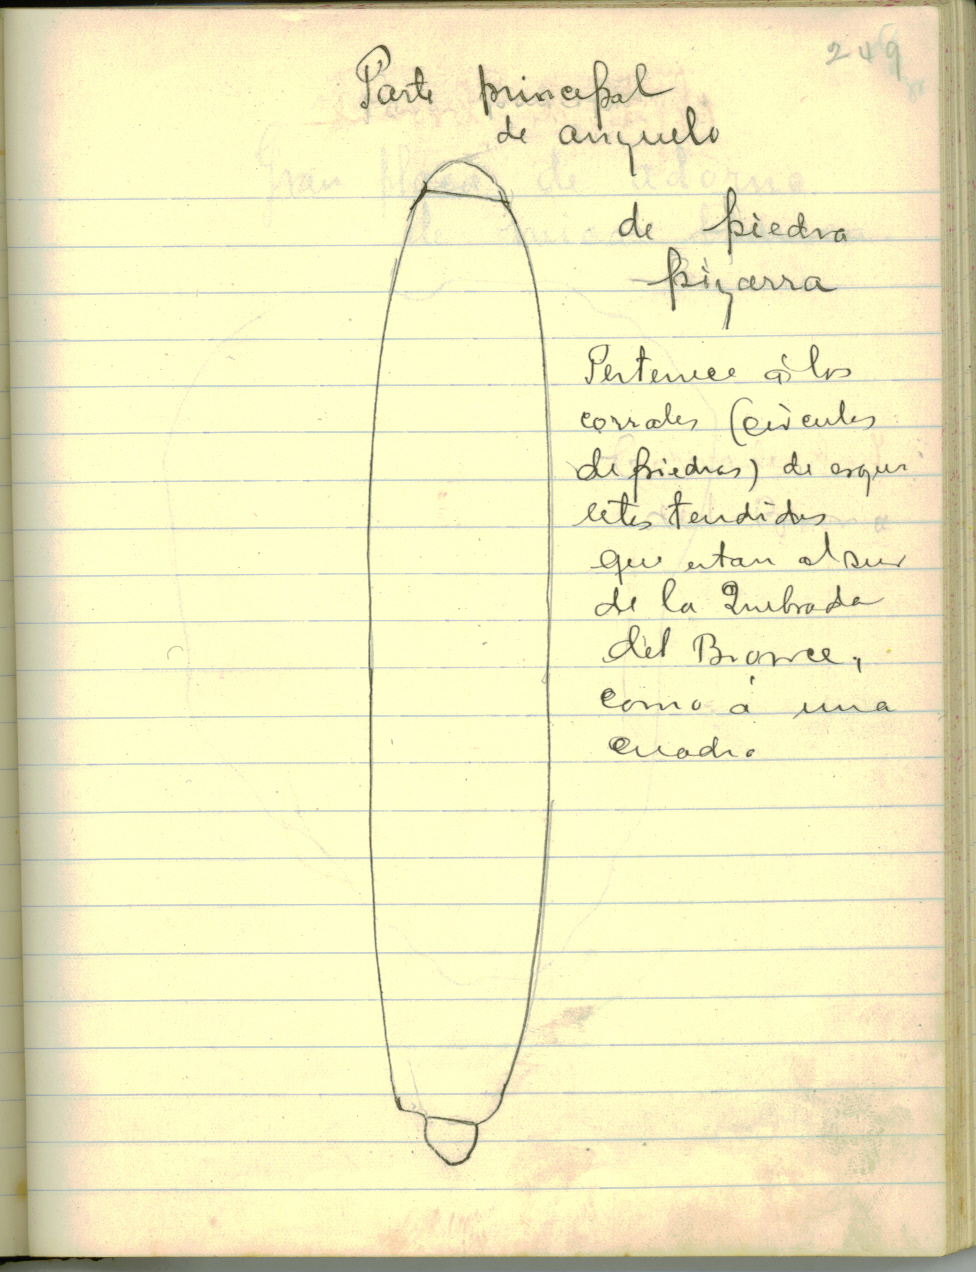 249
Parte principal
de anzuelo
de piedra
pizarra
Pertenece á los
corrales (círculos
de piedras) de esque
letos tendidos
que estan al sur
de la Quebrada
del Bronce,
como á una
cuadra
Gran placa de adorno
de